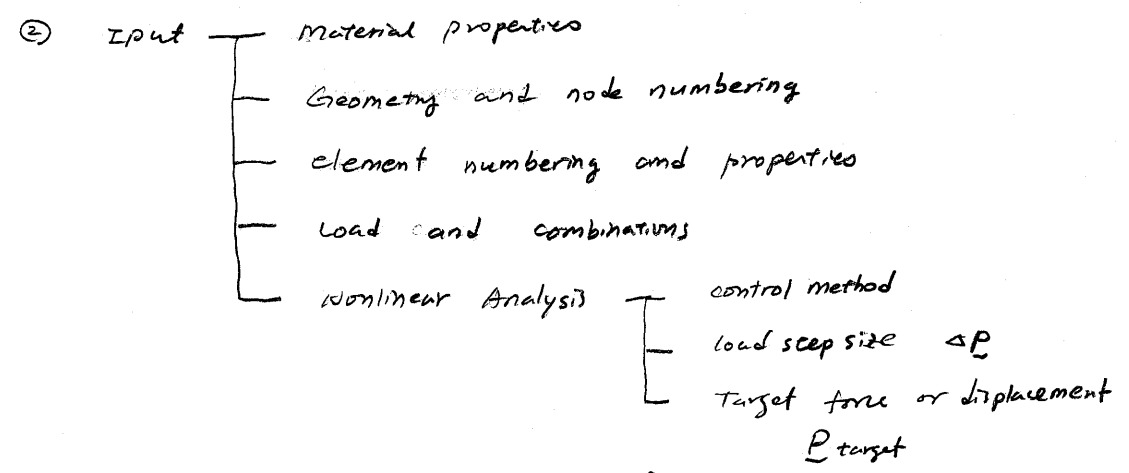 ② Iput Material properties
Geometry and node numbering
element numbering and properties
Load and combinations
Nonlinear Analysis control method
load step size ΔP
Target force or displacement
P target